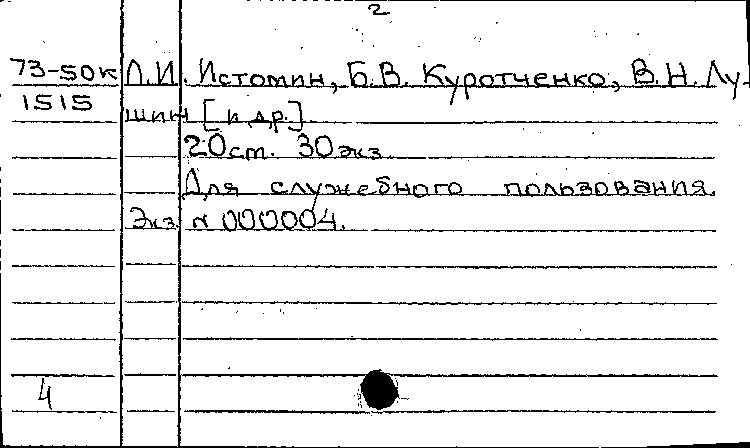 2
73-50к Л.И. Истомин, Б.В. Куротченко, В.Н. Лу-
1515 шин [и др.].
20ст. 30экз.
Для служебного пользования.
Экз. N 000004.
4